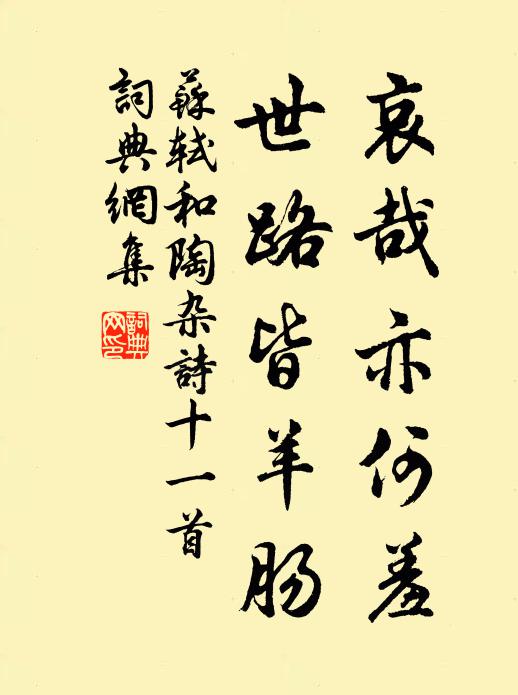 哀哉亦何羞
世路皆羊肠
蘇轼和陶杂詩十一首
詞典網集
詞典网印